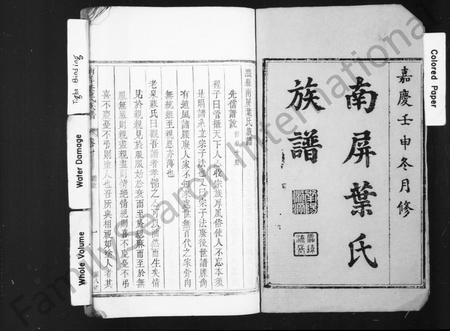 Colored Paper
嘉慶壬申冬月修
南屏葉氏
族譜
先儒譜說
程子曰管攝天下人心收宗族厚風俗使人不忘本須
是明譜系立宗子法又曰宗子法廢後世譜牒尚
有遺風譜牒又廢人家不知來處無百代之家骨肉
無統雖至親恩亦薄也
老泉蘇氏曰觀吾譜者孝悌之心可以油然而生矣情
見於親親見於服服始於衰而至於緦麻而至於無
服無服則親盡親盡則情盡情盡則喜不慶憂不弔
喜不慶憂不弔則塗人也吾所與相視如塗人者其
Tight Binding
Water Damage
Whole Volume
FamilySearch International